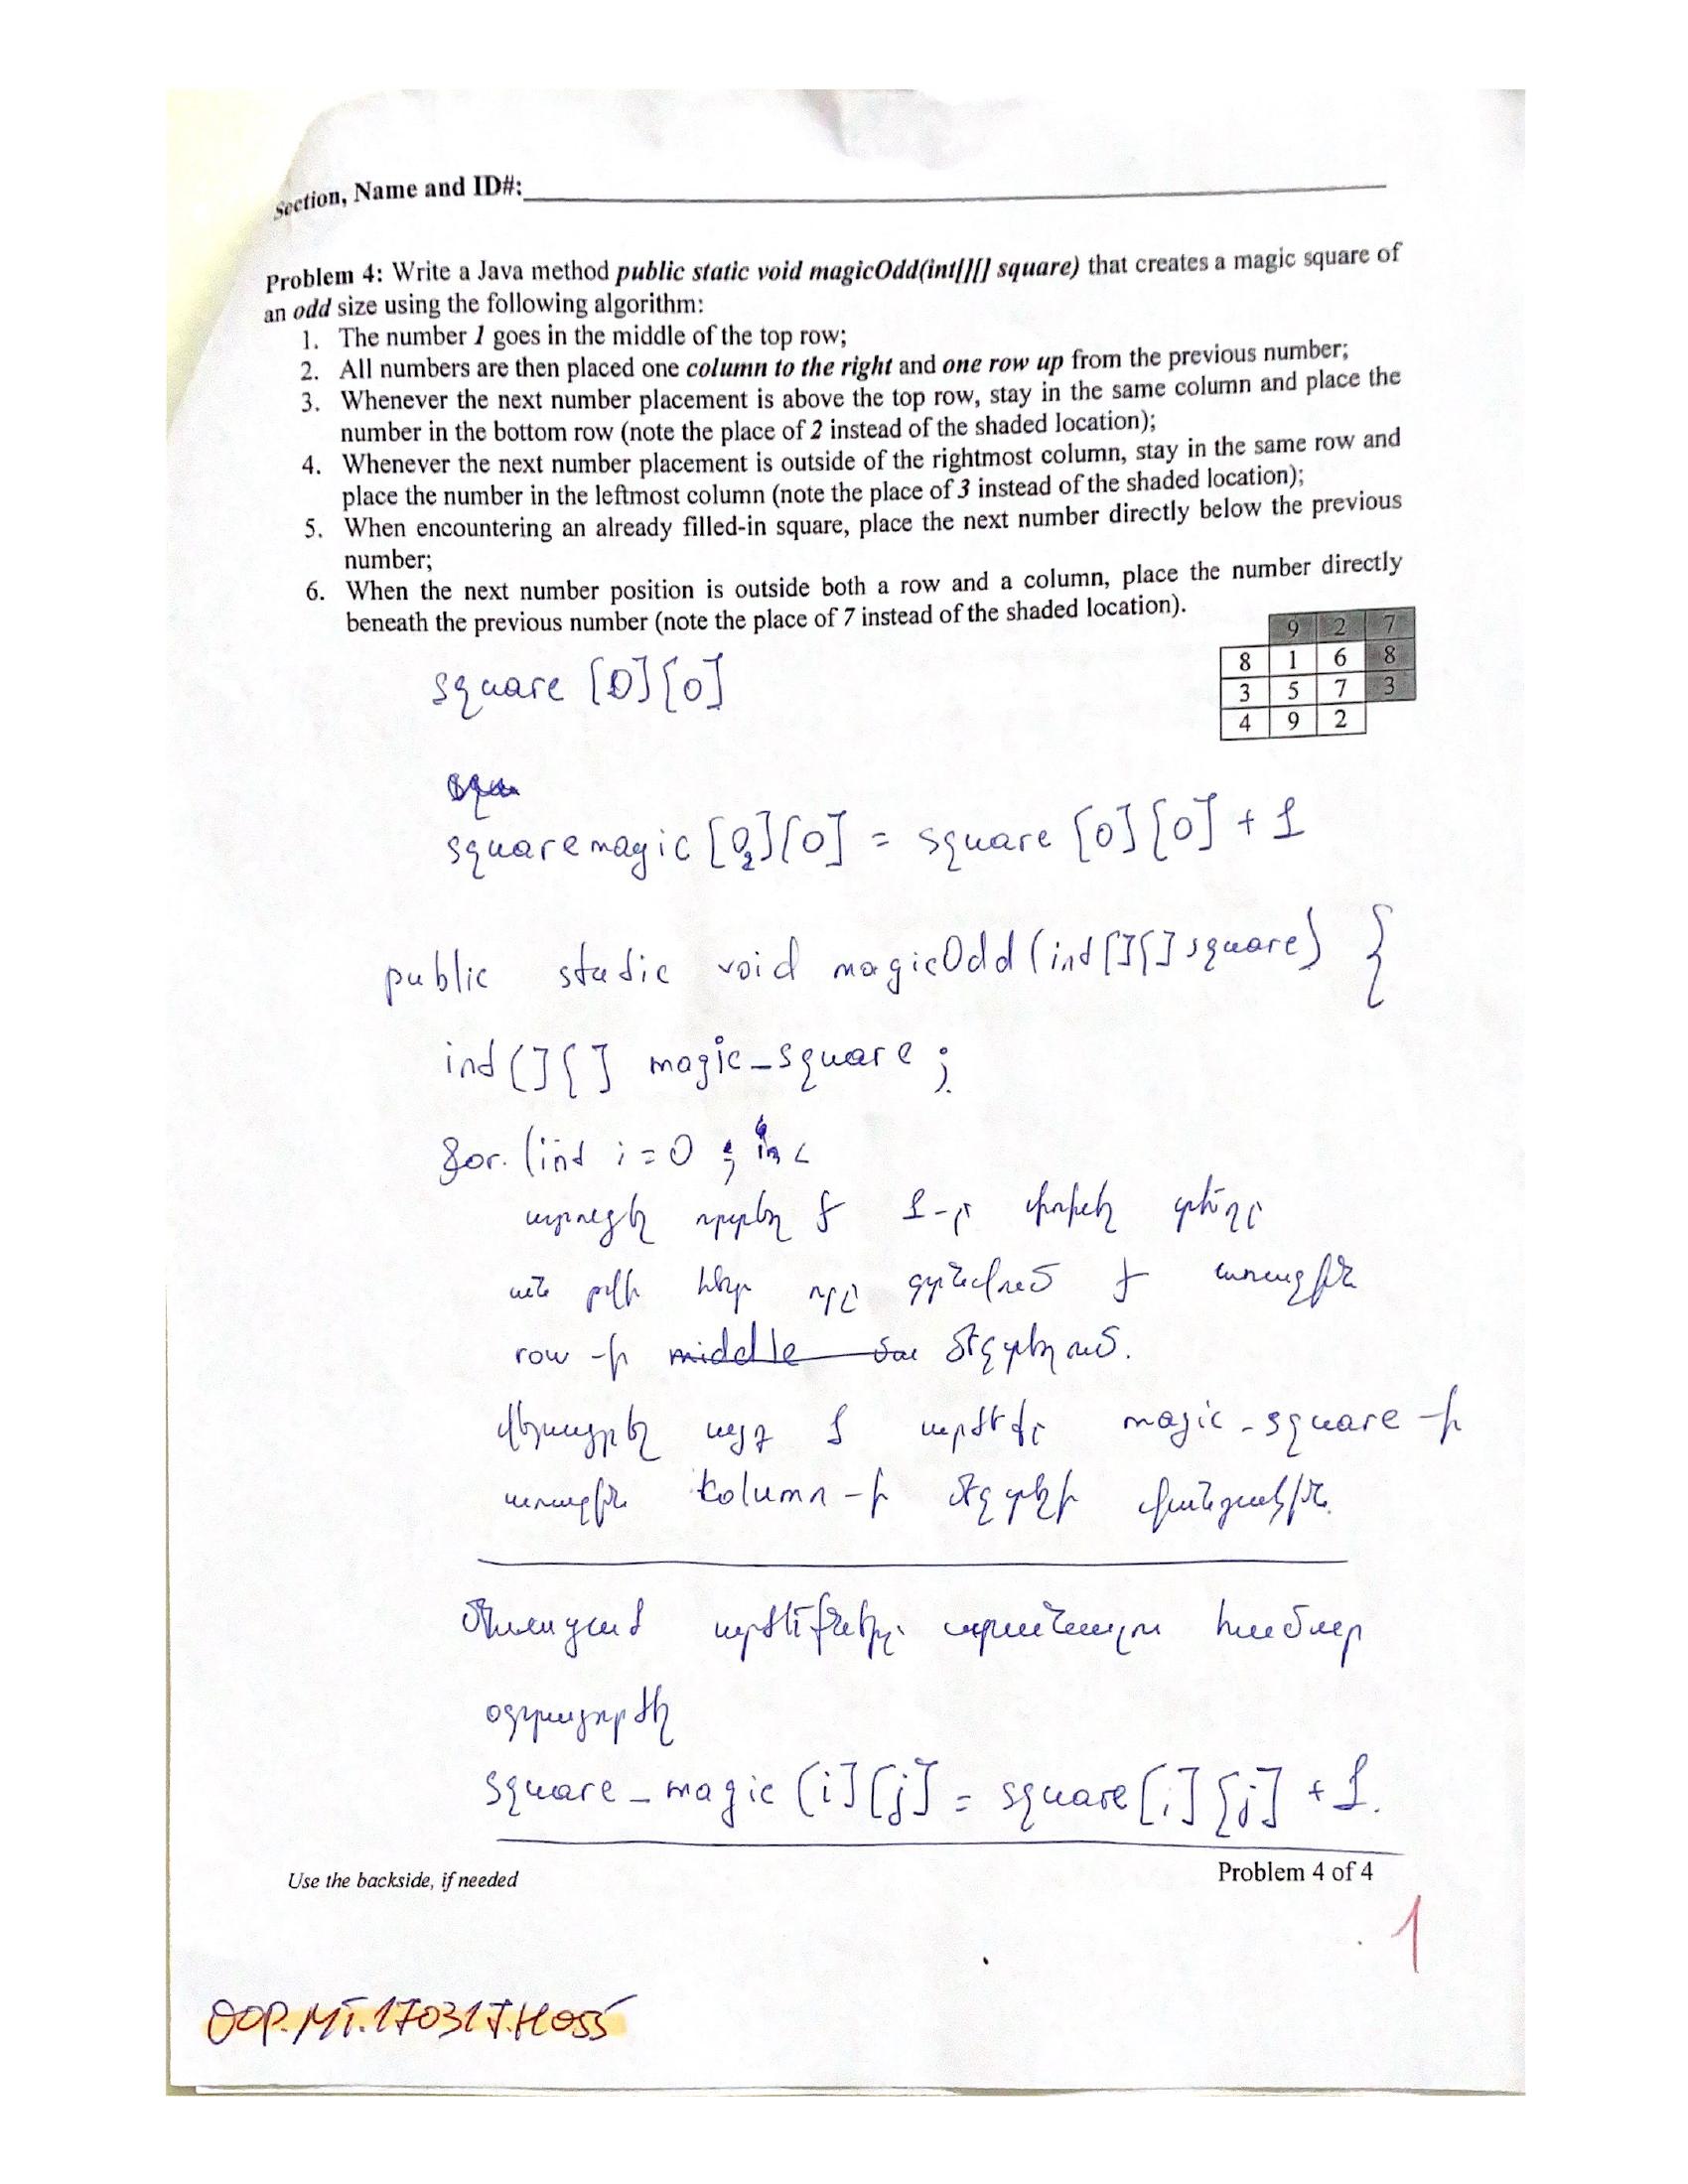 Section, Name and ID#:
Problem 4: Write a Java method public static void magicOdd(int[][] square) that creates a magic square of
an odd size using the following algorithm:
1. The number 1 goes in the middle of the top row;
2. All numbers are then placed one column to the right and one row up from the previous number;
3. Whenever the next number placement is above the top row, stay in the same column and place the
number in the bottom row (note the place of 2 instead of the shaded location);
4. Whenever the next number placement is outside of the rightmost column, stay in the same row and
place the number in the leftmost column (note the place of 3 instead of the shaded location);
5. When encountering an already filled-in square, place the next number directly below the previous
number;
6. When the next number position is outside both a row and a column, place the number directly
beneath the previous number (note the place of 7 instead of the shaded location).
9 2 7
8 1 6 8
3 5 7 3
4 9 2
square [0][0]
squaremagic [0][0] = square [0][0] + 1
public static void magicOdd (int [][] square) {
int [][] magic_square ;
for (int i = 0 ; <
1-ը փոխել տեղը
այն թվի հետ որը գտնվում է առաջին
row-ի middle
magic-square-ի
առաջին column-ի
համար
square_magic [i][j] = square [i][j] + 1.
Use the backside, if needed
Problem 4 of 4
1
OOP.MT.170317.H055